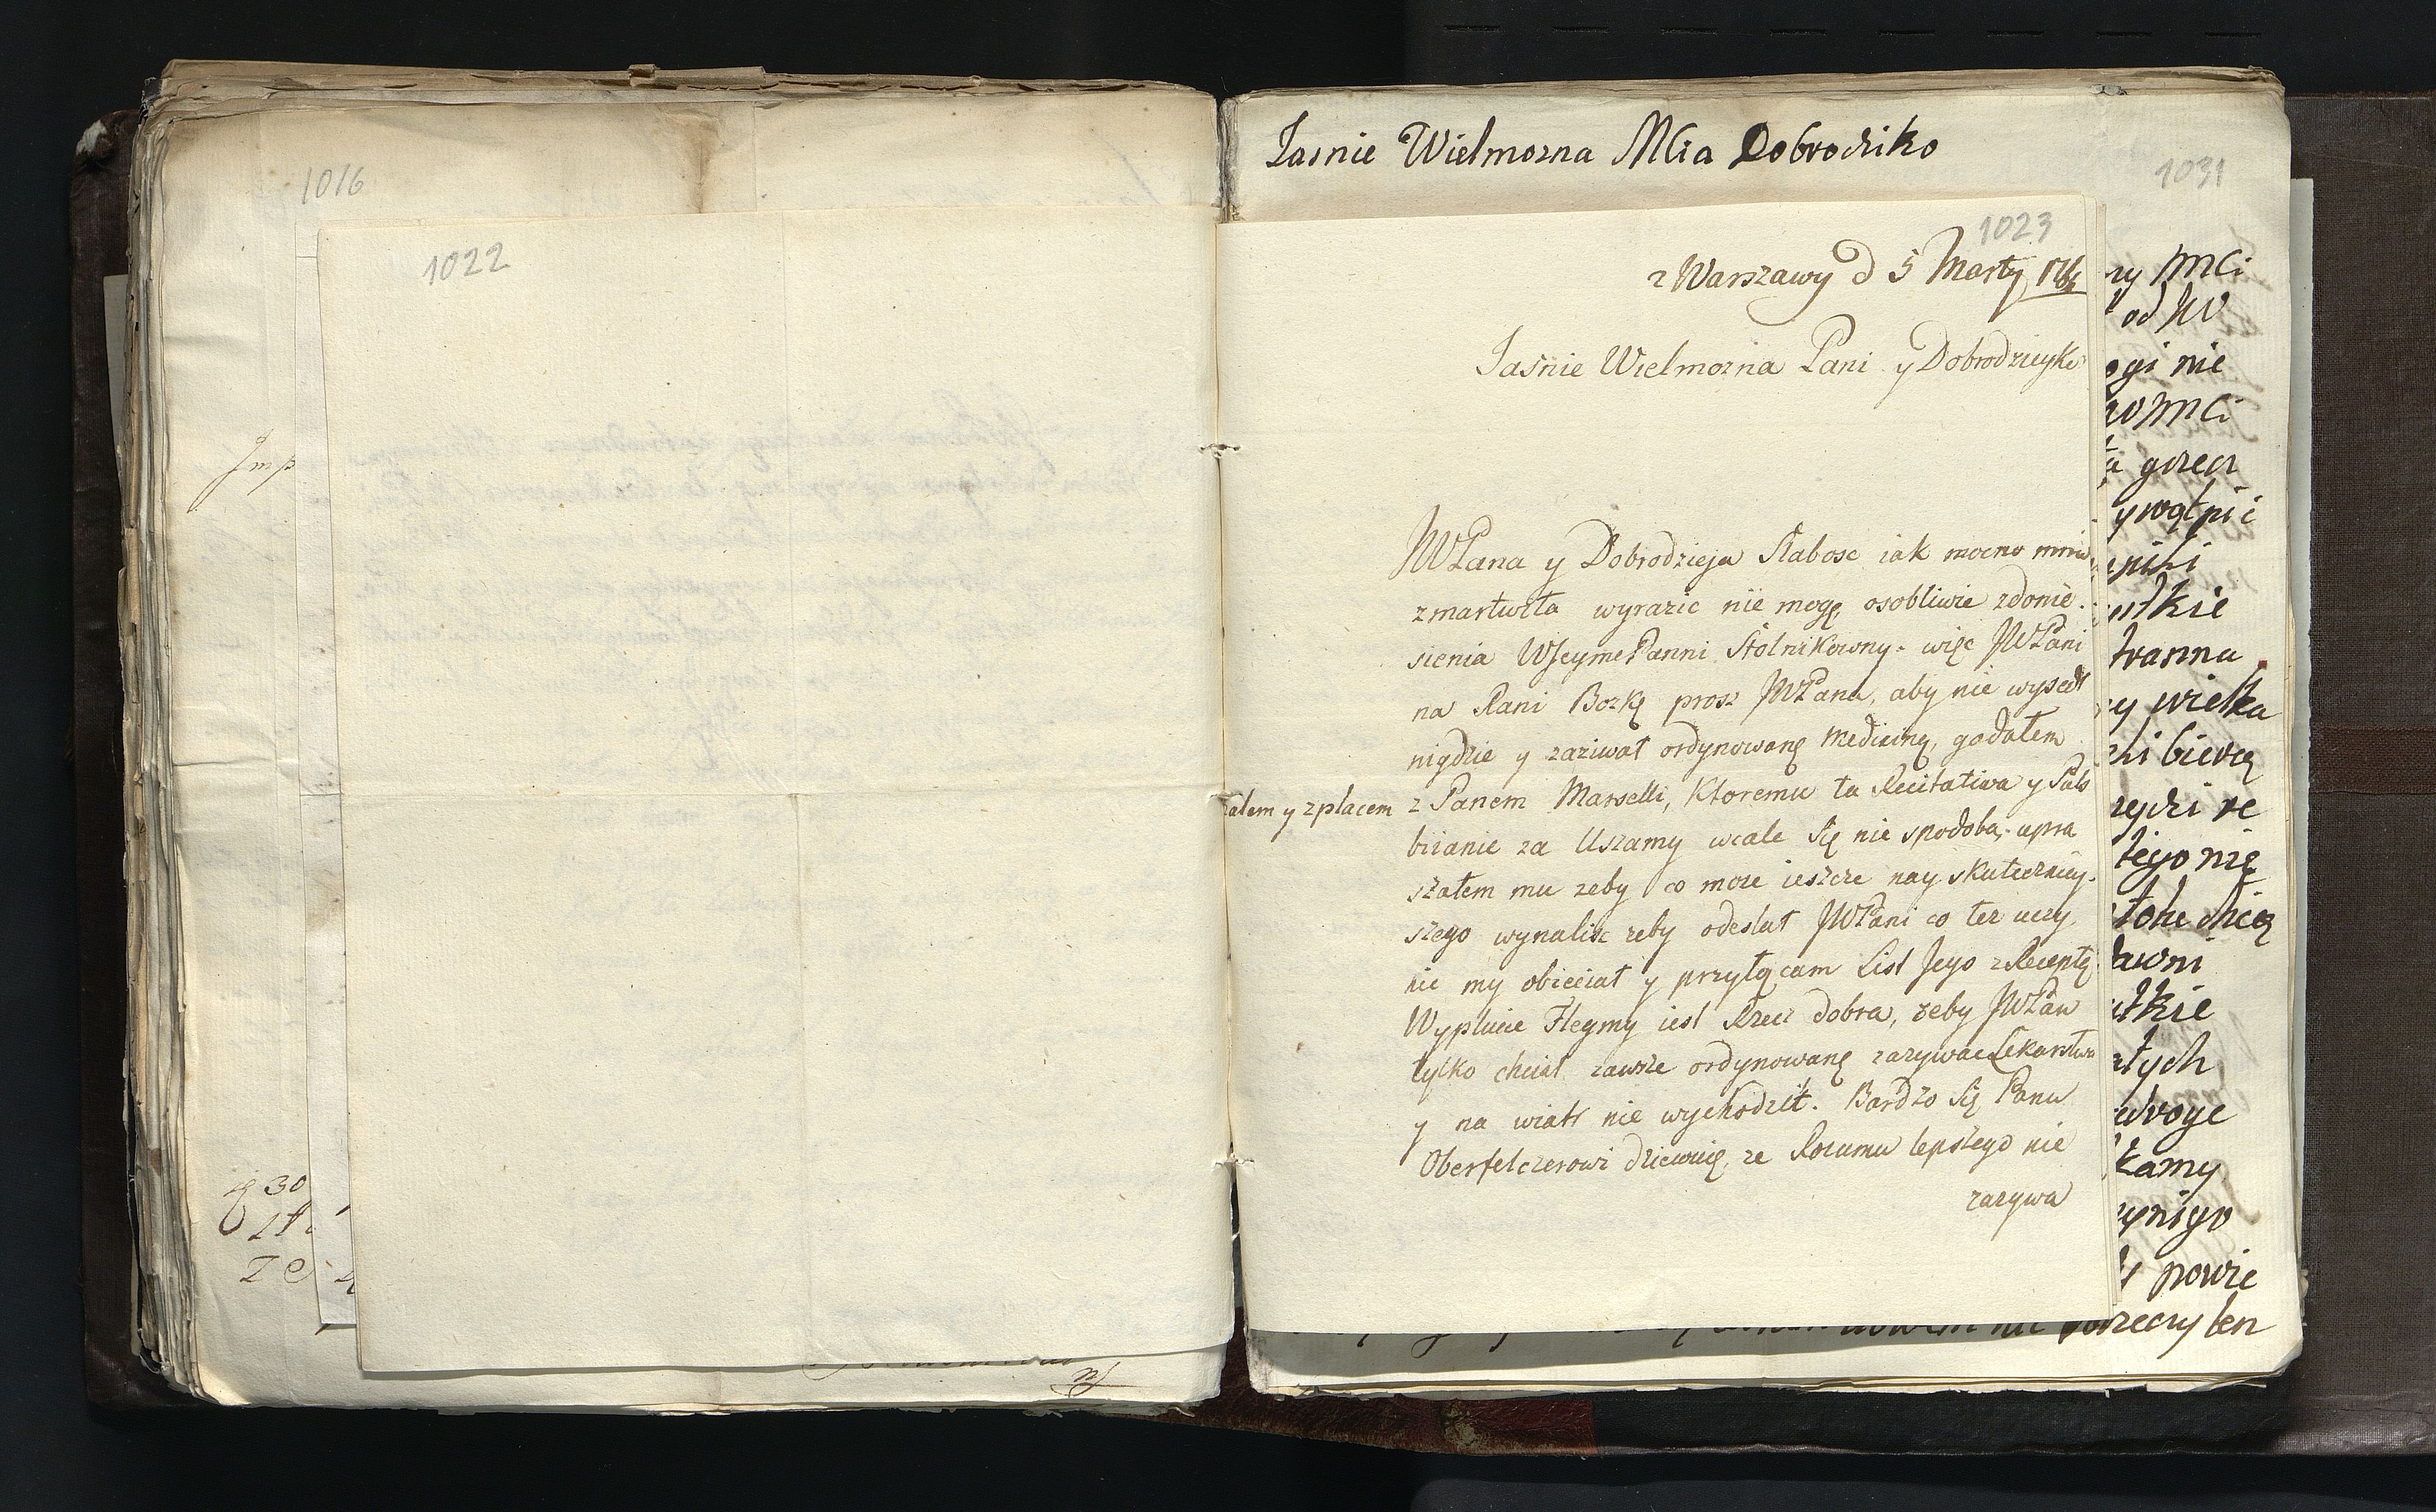 1016
1022
Jmp
30
Jasnie Wielmozna MCia Dobrodziko
1031
1023
z Warszawy d 5 Marty
Jasnie Wielmozna Pani y Dobrodzieyko
JWPana y Dobrodzieja Słabosc iak mocno mnie
zmartwiła wyrazic nie mogę, osobliwie zdonie-
sienia WJeyme Panni Stolnikowny. więc JWPani
na Rani Bozkę prosz JWPana, aby nie wysedł
nigdzie y zaziwał ordynowanę medicinę, gadałem
z Panem Marselli, Ktoremu ta Recitativa y Puls
ałem y zpłacem
biianie za Uszamy wcale się nie spodoba, upra
szałem mu zeby co moze ieszcze nay skuteczniey-
szego wynalisc zeby odesłał JWPani co tez uczy
nic my obieciał y przyłącam List Jego z Receptę
Wyplucie Flegmy iest Rzecz dobra, zeby JWPan
tylko chciał zawsze ordynowanę zazywac Lekarstwa
y na wiatr nie wychodził. Bardzo się Panu
Oberfelczerowi dziewuię, ze Rozumu lepszego nie
zazywa
ry MCi
od JW
ogi nie
wMCi
gorecz
ywątpic
tranna
y wielka
chi biecę
tego nię
dawni
tych
kamy
powie
rzeczy ten